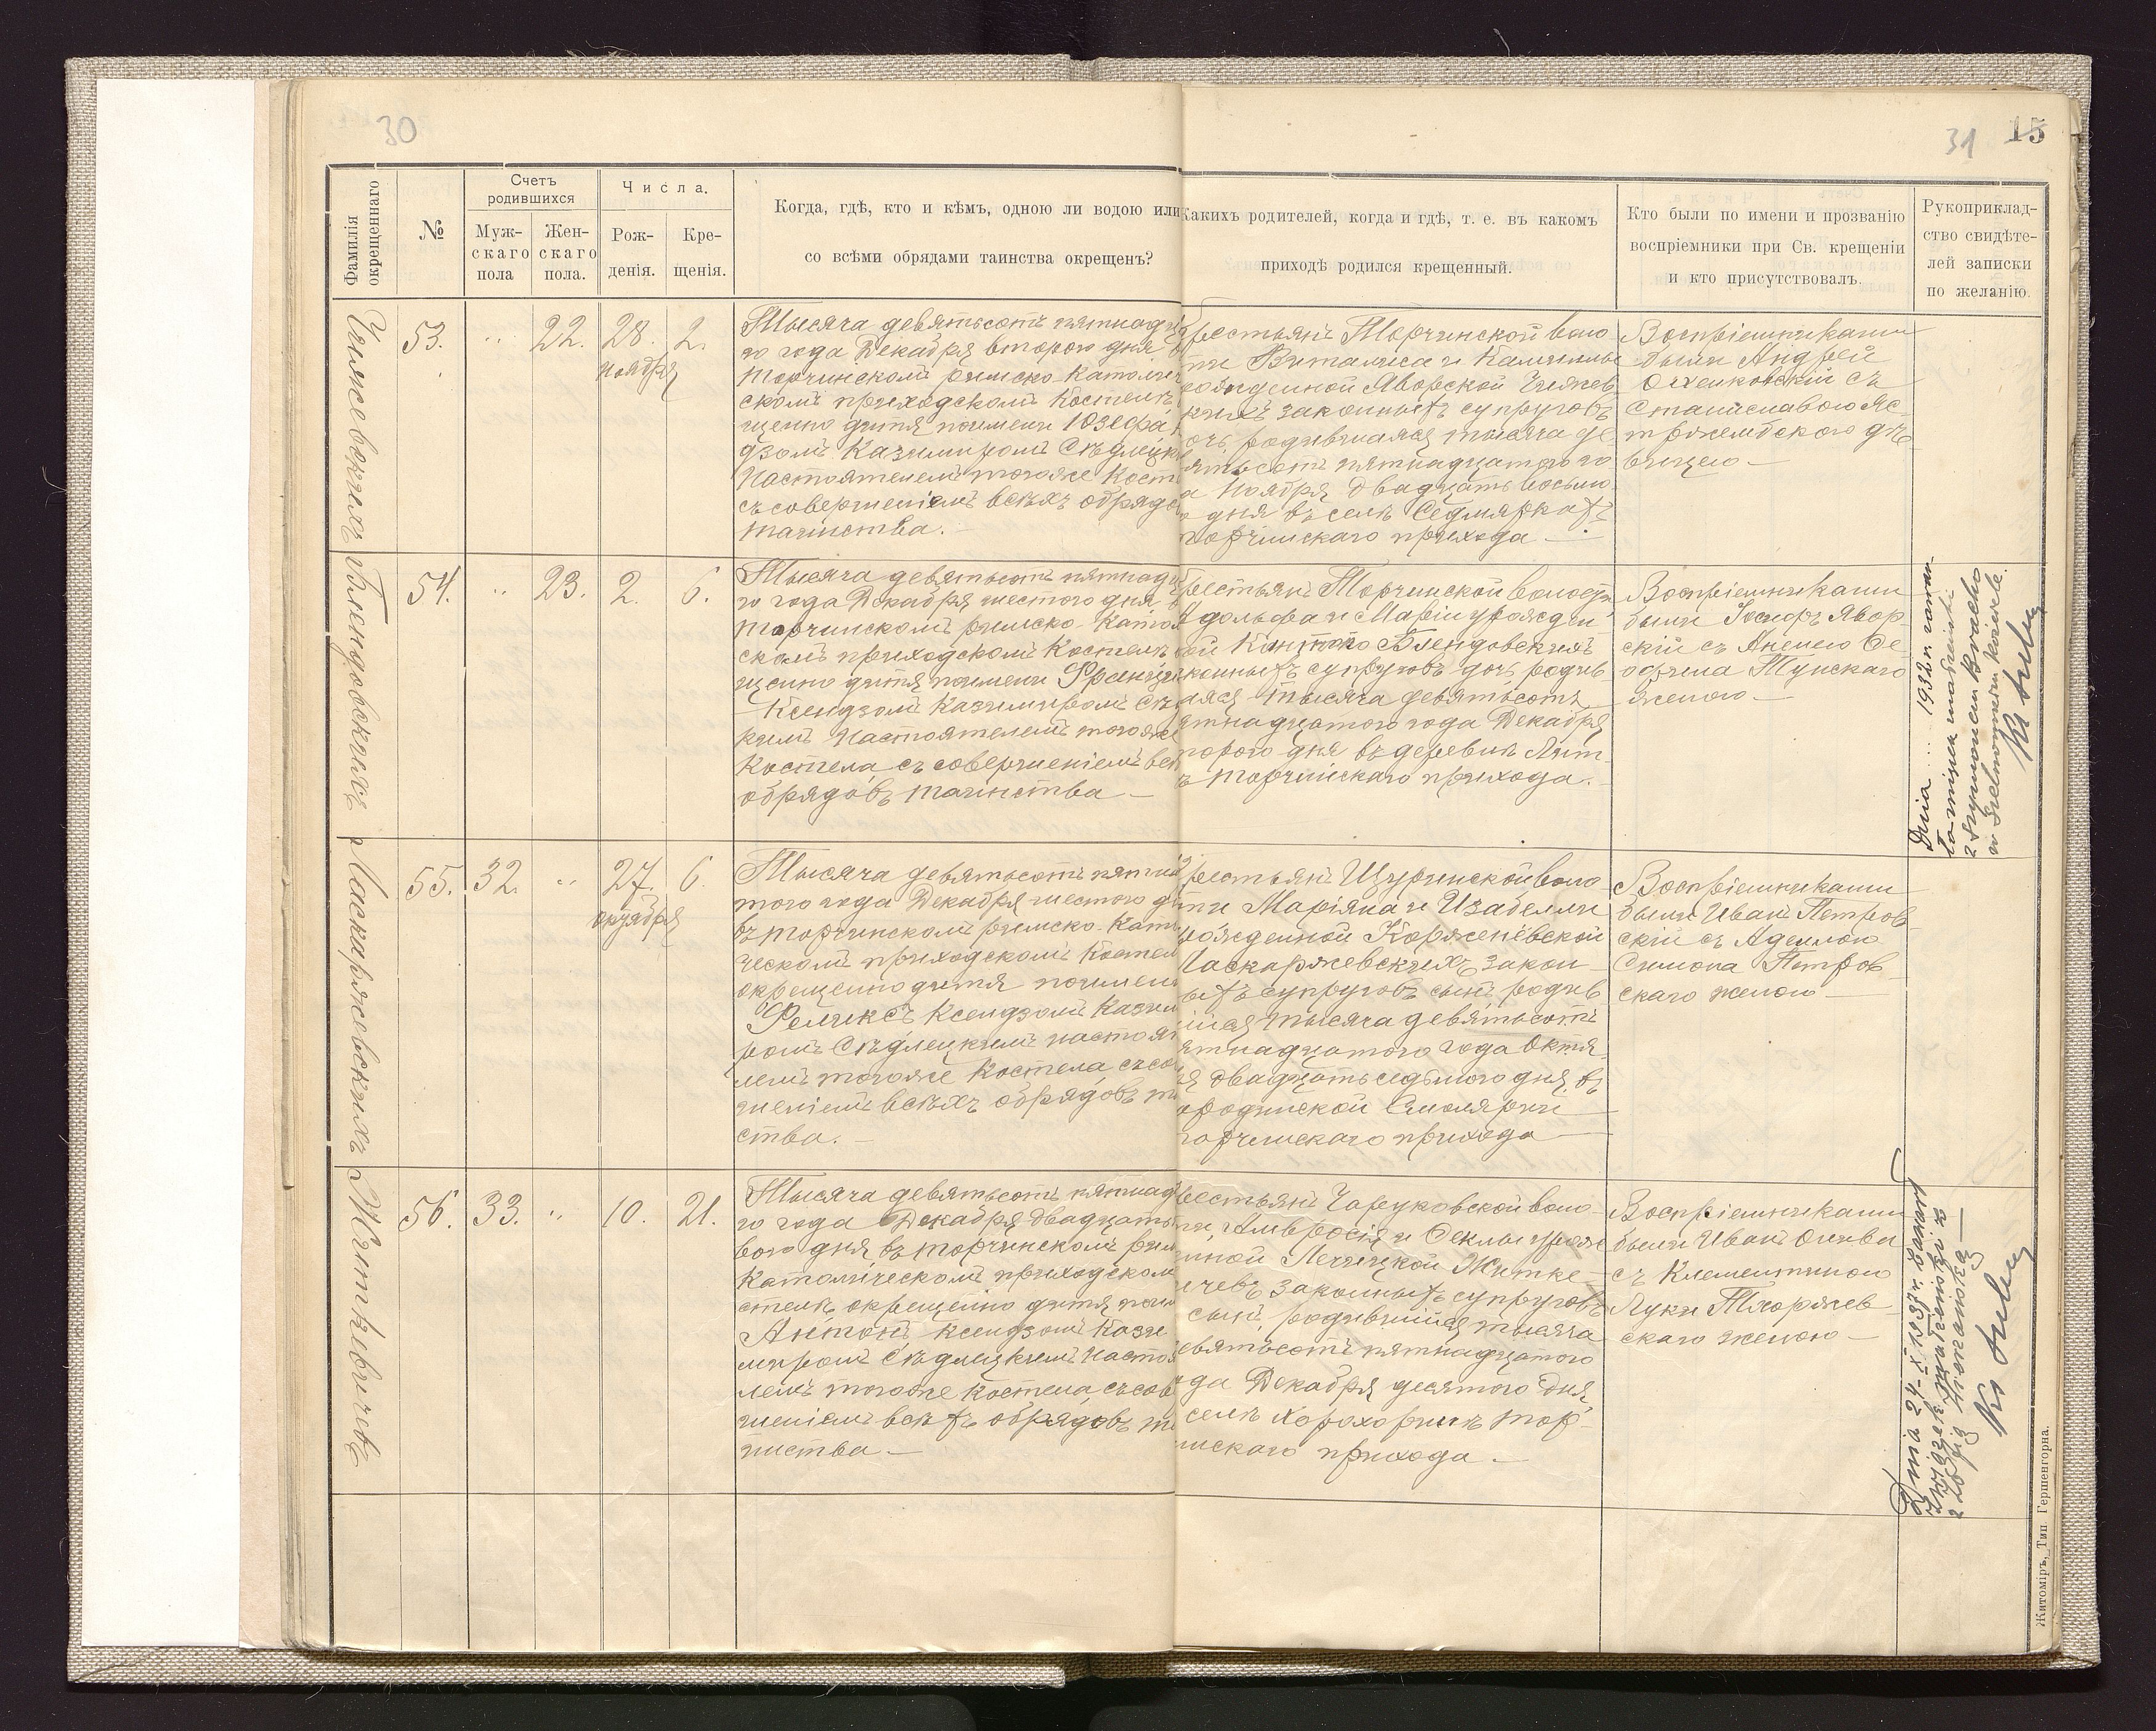 30
31 15
Фамилія окрещеннаго
№
Счетъ родившихся
Муж-
скаго
пола
Жен-
скаго
пола.
Числа.
Рож-
денія.
Кре-
щенія.
Когда, гдѣ, кто и кѣмъ, одною ли водою или
со всѣми обрядами таинства окрещенъ?
Какихъ родителей, когда и гдѣ, т. е. въ какомъ
приходѣ родился крещенный.
Кто были по имени и прозванію
воспріемники при Св. крещеніи
и кто присутствовалъ.
Рукоприклад-
ство свидѣте-
лей записки
по желанію.
53. " 22. 28. 2.
ноября
Тысяча девятьсотъ пятнадца
го года Декабря второго дня
Торчинскомъ римско-католиче
скомъ приходскомъ костелѣ
щено дитя по имени Юзефа
дзомъ Казимиромъ Сѣдлецк
Настоятелемъ того же Кост
съ совершеніемъ всѣхъ обрядо
таинства.
рестьянъ Торчинской воло
ти Виталиса и Камиллы
рожденной Яворской
кихъ законныхъ супруговъ
очь, родившаяся тысяча де
ятьсотъ пятнадцатого го
а Ноября двадцать восьмо
о дня въ селѣ Седмяркахъ
торчинскаго прихода
Воспріемниками
были Андрей
съ
Станиславою Яс-
тржембского дѣ-
вицею
54. " 23. 2. 6.
Блендовскихъ
Тысяча девятьсотъ пятнадц
го года Декабря шестого дня
Торчинскомъ римско-катол
скомъ приходскомъ Костелѣ
щено дитя по имени Франци
Ксендзомъ Казимиромъ Сѣ
кимъ Настоятелемъ того же
Костела, съ совершеніемъ всѣ
обрядовъ таинства
рестьянъ Торчинской волости
Адольфа и Маріи урожден
ой Блендовскихъ
конныхъ супруговъ дочь, родив-
аяся тысяча девятьсотъ
ятнадцатого года Декабря
торого дня въ деревнѣ
торчинскаго прихода.
Воспріемниками
были Іосифъ Явор-
скій съ Анелею Ѳе-
офила Тупскаго
женою
Dnia 1932 r. zawar-
ła związek małżeński
z Szymonem
w kościele
55. 32. " 27. 6.
октября
Маскаржевскихъ
Тысяча девятьсотъ пятна
того года Декабря шестого д
въ Торчинскомъ римско-като
ческомъ приходскомъ костел
окрещено дитя по имени
Феликсъ Ксендзомъ Казим
ромъ Сѣдлецкимъ настоят
лемъ того же Костела, съ со
шеніемъ всѣхъ обрядовъ та
ства.
рестьянъ Щуринской воло
ти Маріяна и Изабеллы
рожденной Корженевской
Маскаржевскихъ закон-
ыхъ супруговъ сынъ, родив
ійся тысяча девятьсотъ
ятнадцатого года Октя
я двадцать седьмого дня, въ
ородинской Смолярни
торчинскаго прихода
Воспріемниками
были Иванъ Петров-
скій съ Аделлою
Симона Петров-
скаго женою
56. 33. " 10. 21.
Житкевичевъ
Тысяча девятьсотъ пятнад
го года Декабря двадцать
вого дня, въ торчинскомъ рим
католическомъ приходском
стелѣ, окрещено дитя по им
Антонъ ксендзомъ Кази
миромъ Сѣдлецкимъ Настоя
лемъ того же Костела, съ сов
шеніемъ всѣхъ обрядовъ та
инства
рестьянъ Чаруковской воло-
ти, Амвросія и Ѳеклы урож
нной Житке-
ичевъ законныхъ супруговъ
сынъ, родившійся тысяча
евятьсотъ пятнадцатого
да Декабря десятого дня,
селѣ Хорохоринѣ Тор-
инскаго прихода.
Воспріемниками
были Иванъ
съ Клементиною
Луки
скаго женою
Dnia 24-X 1937 r. zawarł
związek małżeński
z Zofją
Житоміръ, Тип. Гершенгорна.